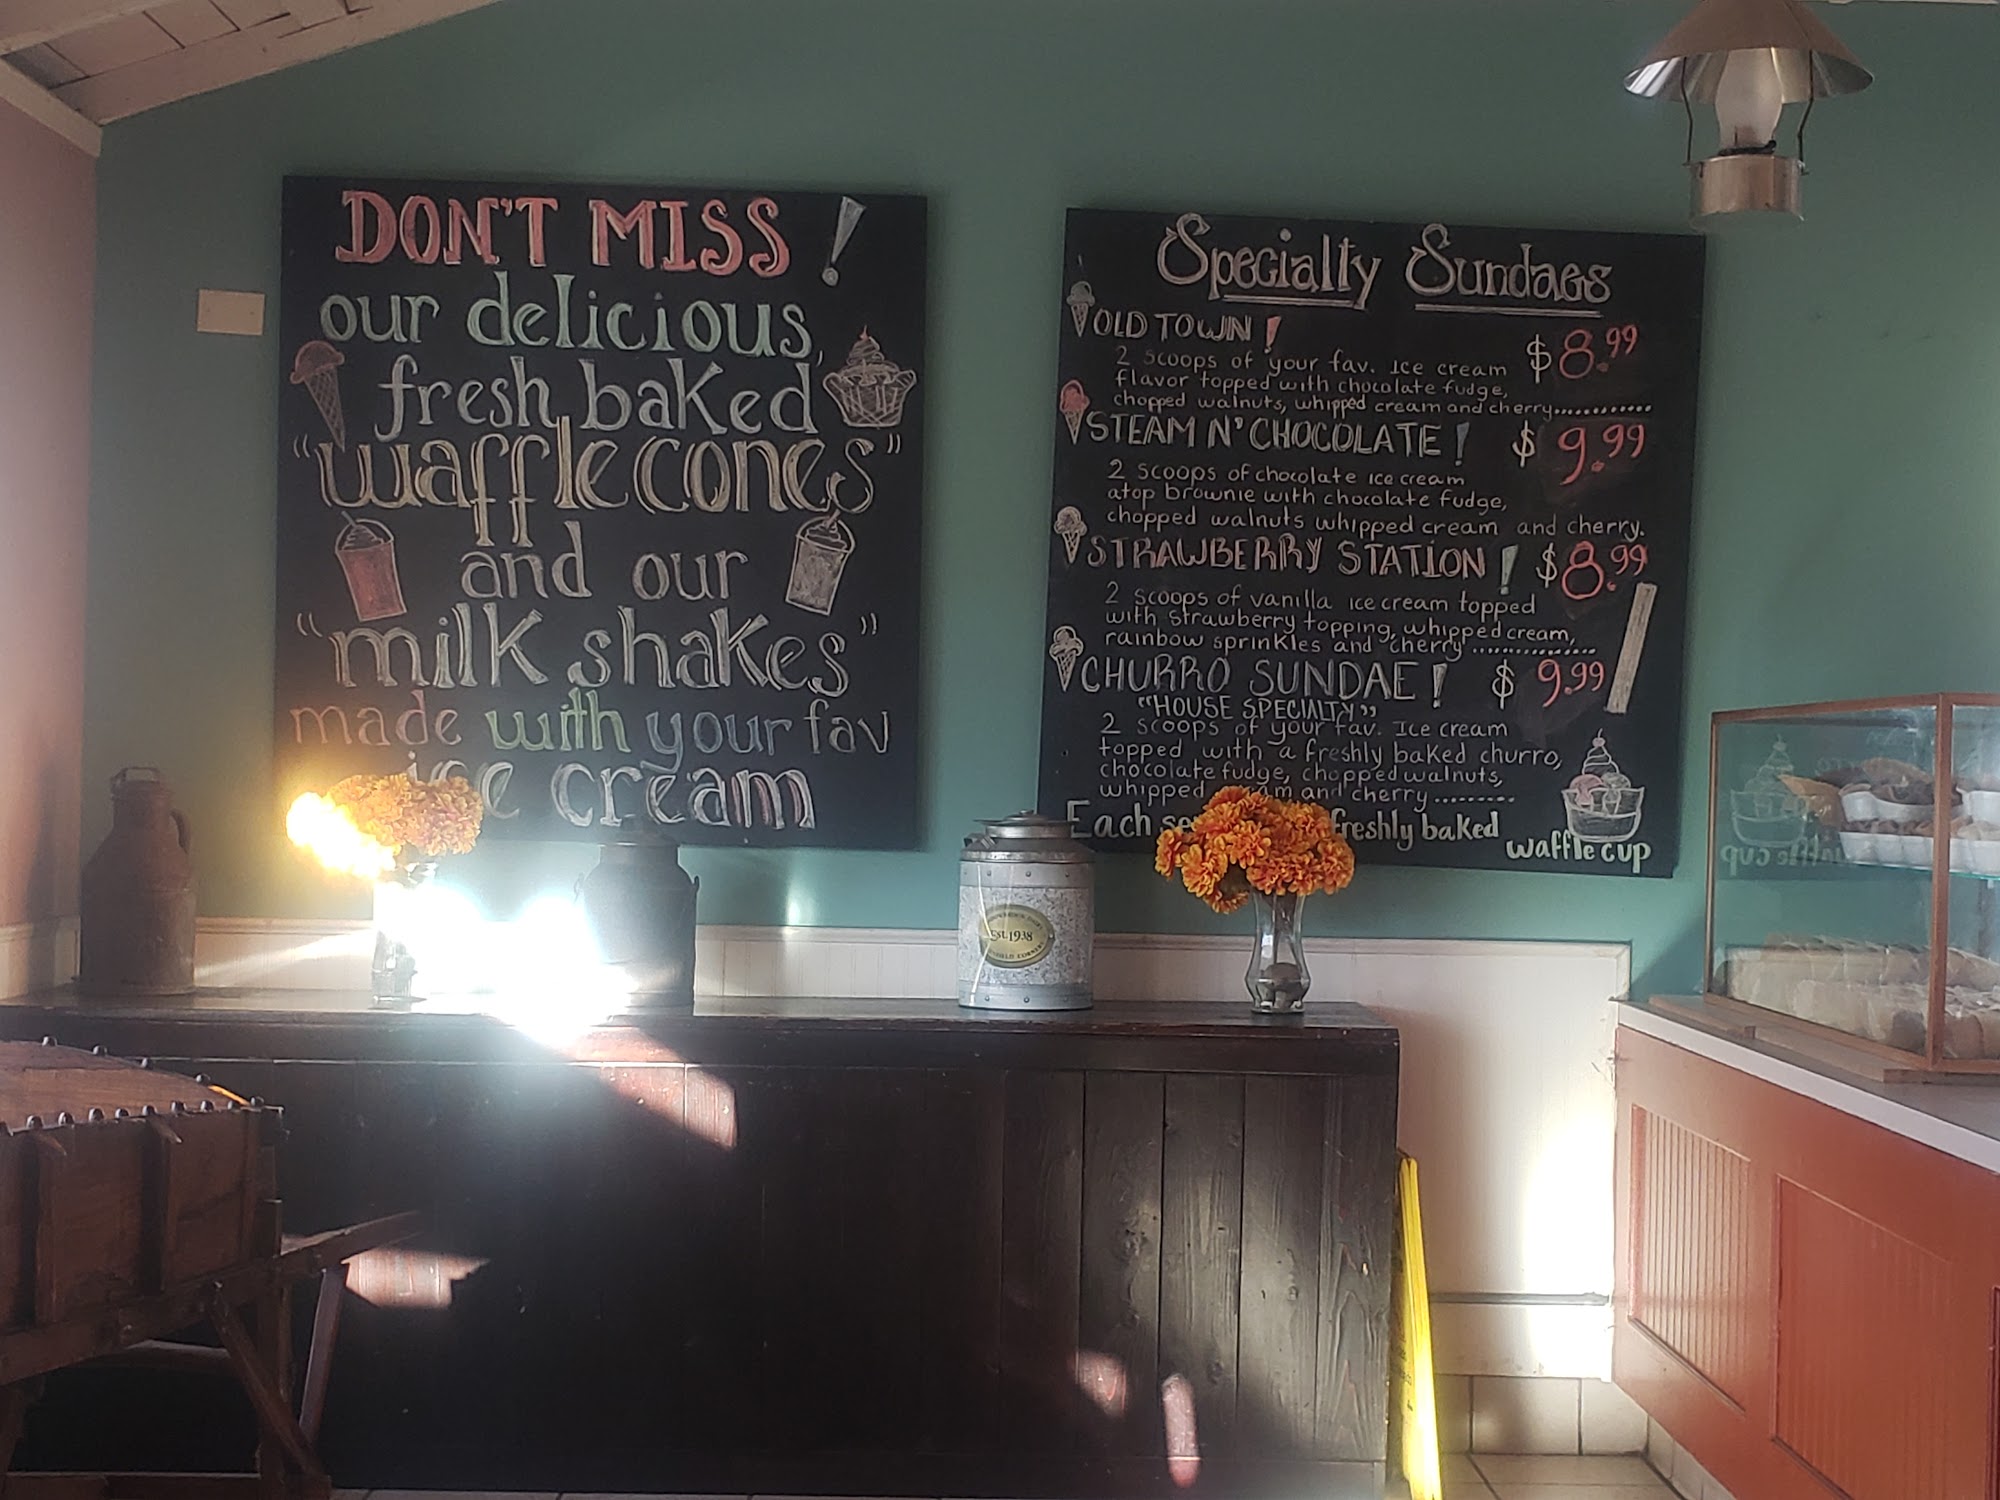 DON'T MISS !
our delicious,
fresh baked
"waffle cones"
and our
"milk shakes"
made with your fav
ice cream
Specialty Sundaes
OLD TOWN ! $8.99
2 scoops of your fav. Ice cream
flavor topped with chocolate fudge,
chopped walnuts, whipped cream and cherry............
STEAM N' CHOCOLATE ! $9.99
2 scoops of chocolate ice cream
atop brownie with chocolate fudge,
chopped walnuts whipped cream and cherry.
STRAWBERRY STATION ! $8.99
2 scoops of vanilla ice cream topped
with strawberry topping, whipped cream,
rainbow sprinkles and cherry..............
CHURRO SUNDAE ! $9.99
"HOUSE SPECIALTY"
2 scoops of your fav. Ice cream
topped with a freshly baked churro,
chocolate fudge, chopped walnuts,
whipped cream and cherry.........
Each freshly baked
waffle cup
EST. 1938